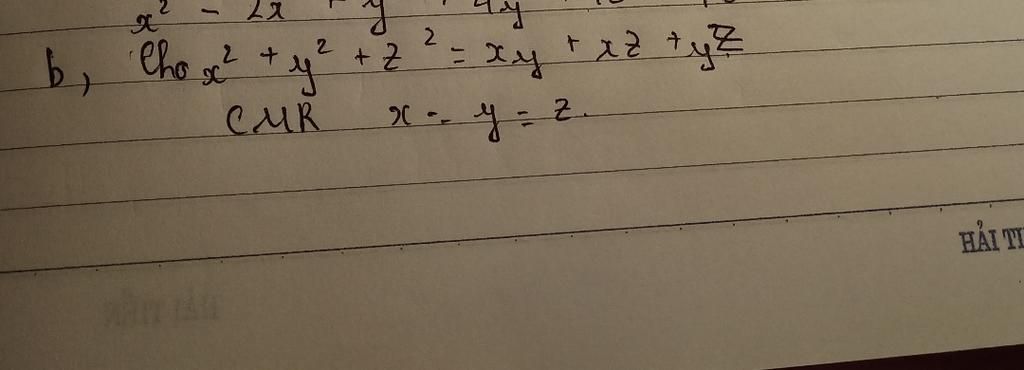 x² - 2x + y
b, Cho x² + y² + z² = xy + xz + yz
CMR x = y = z.
HẢI TI